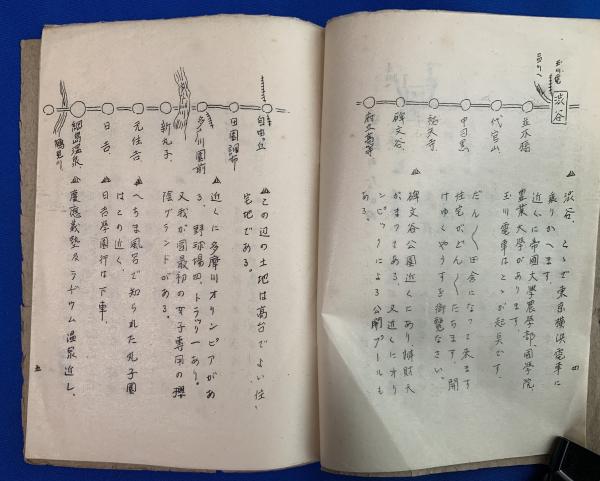 玉川電
渋谷
並木橋
代官山
中目黒
祐天寺
碑文谷
府立高等
渋谷、こゝで東京横浜電車に
乗りかへます。
近くに帝国大學農學部、國學院、
農業大學があります。
玉川電車はこゝが起点です。
だん〱田舎になって来ます
住宅がどん〱たちます。開
けゆくやうすを御覧なさい。
碑文谷公園近くにあり、辨財天
がまつてある。又近くにオリ
ンピックによる公開プールも
ある。
四
自由ヶ丘
田園調布
多マ川園前
新丸子
元住吉
日吉
綱島温泉
鶴見川
この辺の土地は高台でよい住
宅地である。
近くに多摩川オリンピアがあ
る、野球場四、トラック一あり。
又我が國最初の女子専用の
陰グランドがある。
へちま風呂で知られた丸子園
はこの近く、
日吉學園行は下車、
慶應義塾及ラヂウム温泉近し、
五